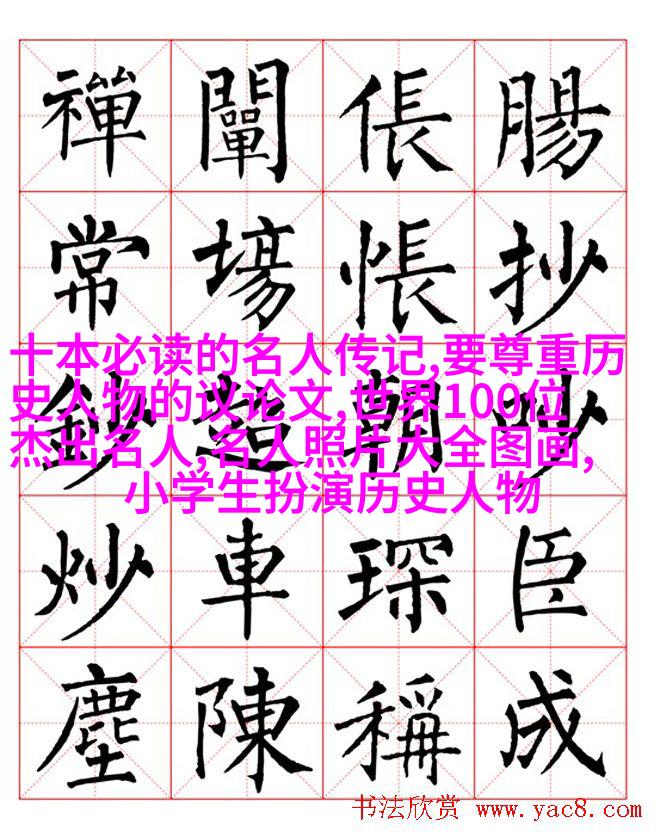 禪 闡 倀 腸
常 場 悵 抄
鈔 超 朝 吵
十本必读的名人传记,要尊重历
史人物的议论文,世界100位
杰出名人,名人照片大全图画,
小学生扮演历史人物
炒 車 琛 臣
塵 陳 稱 成
书法欣赏 www.yac8.com